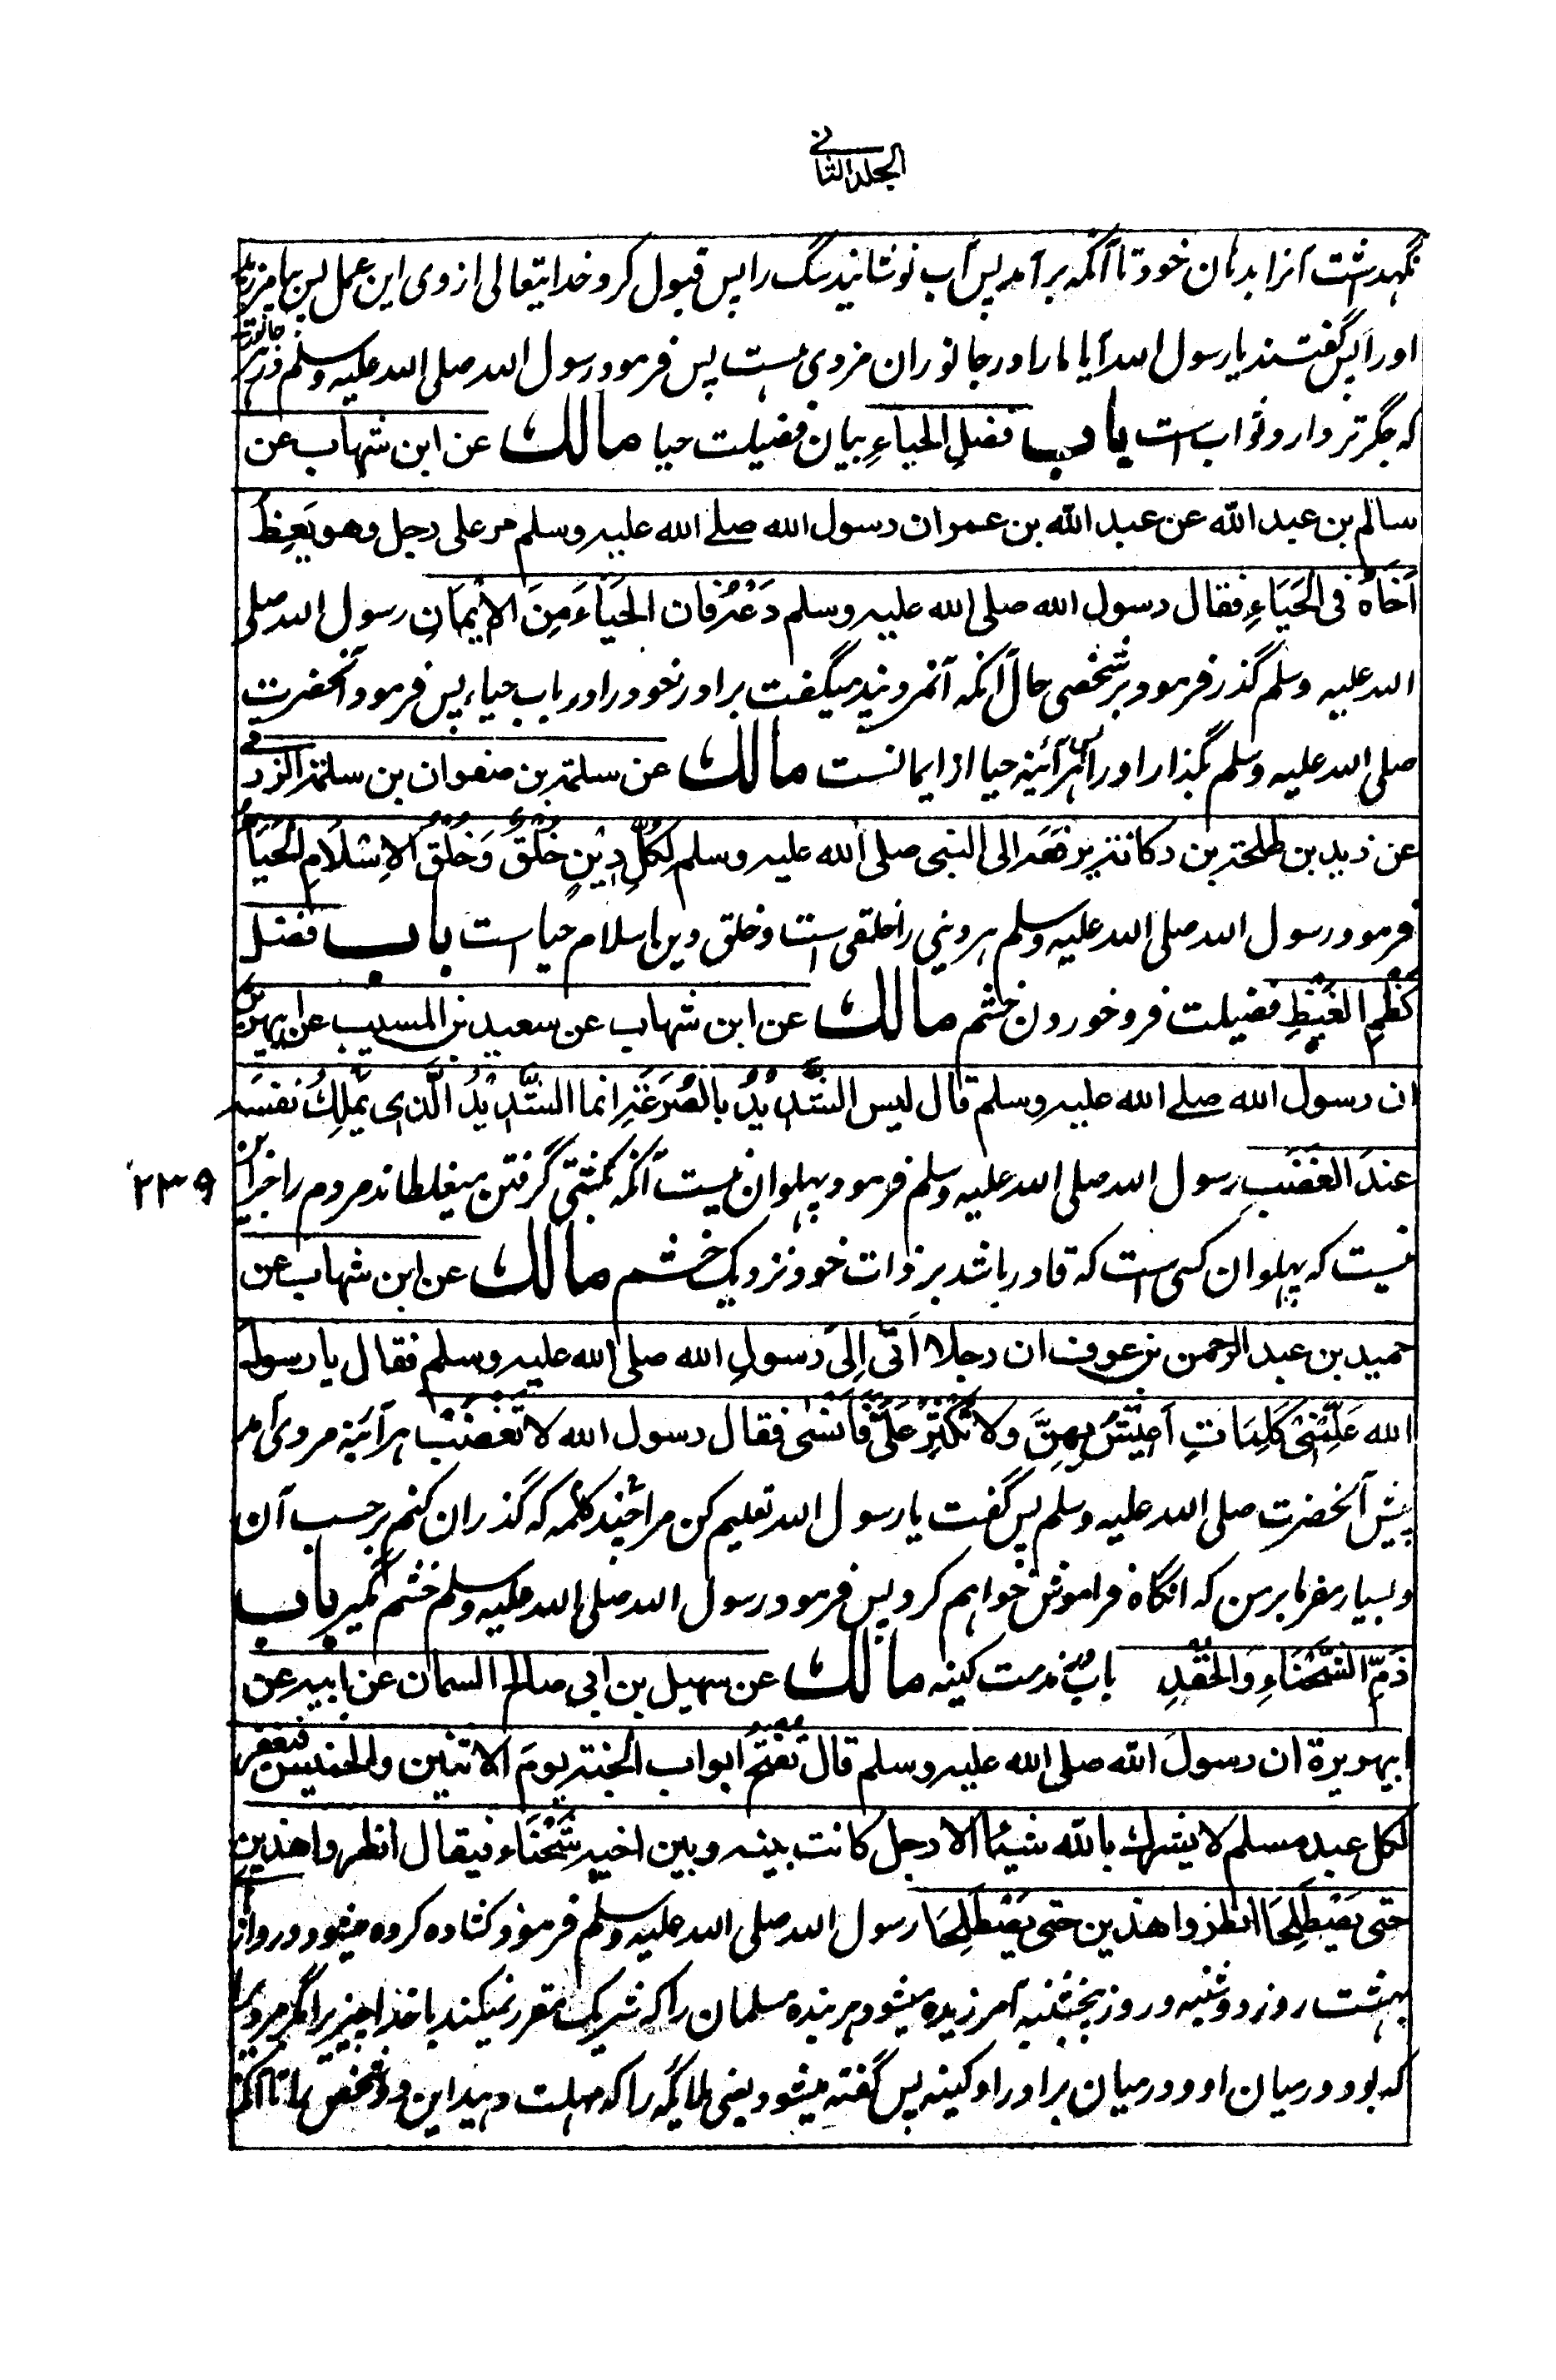 الجلد الثانی
نگہدشت آنرا بدہان خود تا آنکہ برآمد پس آب نوشانید سگ را پس قبول کرد خدا یتعالی از وی این عمل پس بیامرزید
اورا پس گفتند یا رسول اللہ آیا مارا در جانوران مزدی ہست پس فرمود رسول اللہ صلی اللہ علیہ وسلم در ہر جانور
کہ جگر تر دارد ثواب ست باب فضلِ الحیاءِ بیان فضیلت حیا مالک عن ابن شہاب عن
سالم بن عبد الله عن عبد الله بن عمر ان رسول الله صلے الله علیہ وسلم مر علی رجل وھو یَعِظُ
اَخَاہُ فی الحَیَاءِ فقال رسول الله صلی الله علیہ وسلم دَعْہُ فان الحَیَاءَ مِنَ الاِیْمَانِ رسول اللہ صلی
اللہ علیہ وسلم گذر فرمود بر شخصی حال آنکہ آنمرد پند میگفت برادر خود را در باب حیاء پس فرمود آنحضرت
صلی اللہ علیہ وسلم بگذار اورا پس ہر آئینہ حیا از ایمانست مالک عن سلمة بن صفوان بن سلمة الزرقی
عن زید بن طلحة بن رکانة یرفعہ الی النبی صلی الله علیہ وسلم لِکُلِّ دِیْنٍ خُلُقٌ وَخُلُقُ الاِسْلَامِ الحَیَاءُ
فرمود رسول اللہ صلی اللہ علیہ وسلم ہر دینی را خلقی است و خلق دین اسلام حیا است باب فضل
کَظْمِ الغَیْظِ فضیلت فرو خوردن خشم مالک عن ابن شہاب عن سعید بن المسیب عن ابیہریرة
ان رسول الله صلے الله علیہ وسلم قال لیس الشَّدِیْدُ بالصُّرَعَةِ انما الشَّدِیْدُ الَّذِی یَمْلِکُ نَفْسَہ
عندَ الغَضَبِ رسول اللہ صلی اللہ علیہ وسلم فرمود پہلوان نیست آنکہ بکشتی گرفتن میغلطاند مردم را جز این
۲۳۹
نیست کہ پہلوان کسی ست کہ قادر باشد بر ذات خود نزدیک خشم مالک عن ابن شہاب عن
حمید بن عبد الرحمن بن عوف ان رجلا اَتٰی اِلٰی رَسولِ الله صلی الله علیہ وسلم فقال یا رسول
الله عَلِّمْنِیْ کَلِمَاتٍ اَعِیْشُ بِھِنَّ ولا تُکْثِرْ عَلَیَّ فَاَنْسٰی فقال رسول الله لا تَغْضَبْ ہر آئینہ مردی آمد
پیش آنحضرت صلی اللہ علیہ وسلم پس گفت یا رسول اللہ تعلیم کن مرا چند کلمہ کہ گذران کنم بر حسب آن
و بسیار مفرما بر من کہ انگاہ فراموش خواہم کرد پس فرمود رسول اللہ صلی اللہ علیہ وسلم خشم مگیر باب
ذَمِّ الشَّحْنَاءِ وَالحِقْدِ باب مذمت کینہ مالک عن سھیل بن ابی صالح السمان عن ابیہ عن
ابیھریرة ان رسولَ الله صلی الله علیہ وسلم قال تُفْتَحُ ابواب الجنة یومَ الاثنین والخمیس فیغفر
لکل عبد مسلم لا یشرک بالله شیئا الا رجل کانت بینہ وبین اخیہ شَحْنَاء فیقال انظروا ھذین
حتی یَصْطَلِحَا انظروا ھذین حتی یَصْطَلِحَا رسول اللہ صلی اللہ علیہ وسلم فرمود کشادہ کردہ میشود دروازہای
بہشت روز دوشنبہ و روز پنجشنبہ آمرزیدہ میشود ہر بندہ مسلمان را کہ شریک مقرر نمیکند با خدا چیزیرا مگر مردیرا
کہ بود درمیان او و درمیان برادر او کینہ پس گفتہ میشود یعنی ملایکہ را کہ مہلت دہید این دو شخص را تا آنکہ